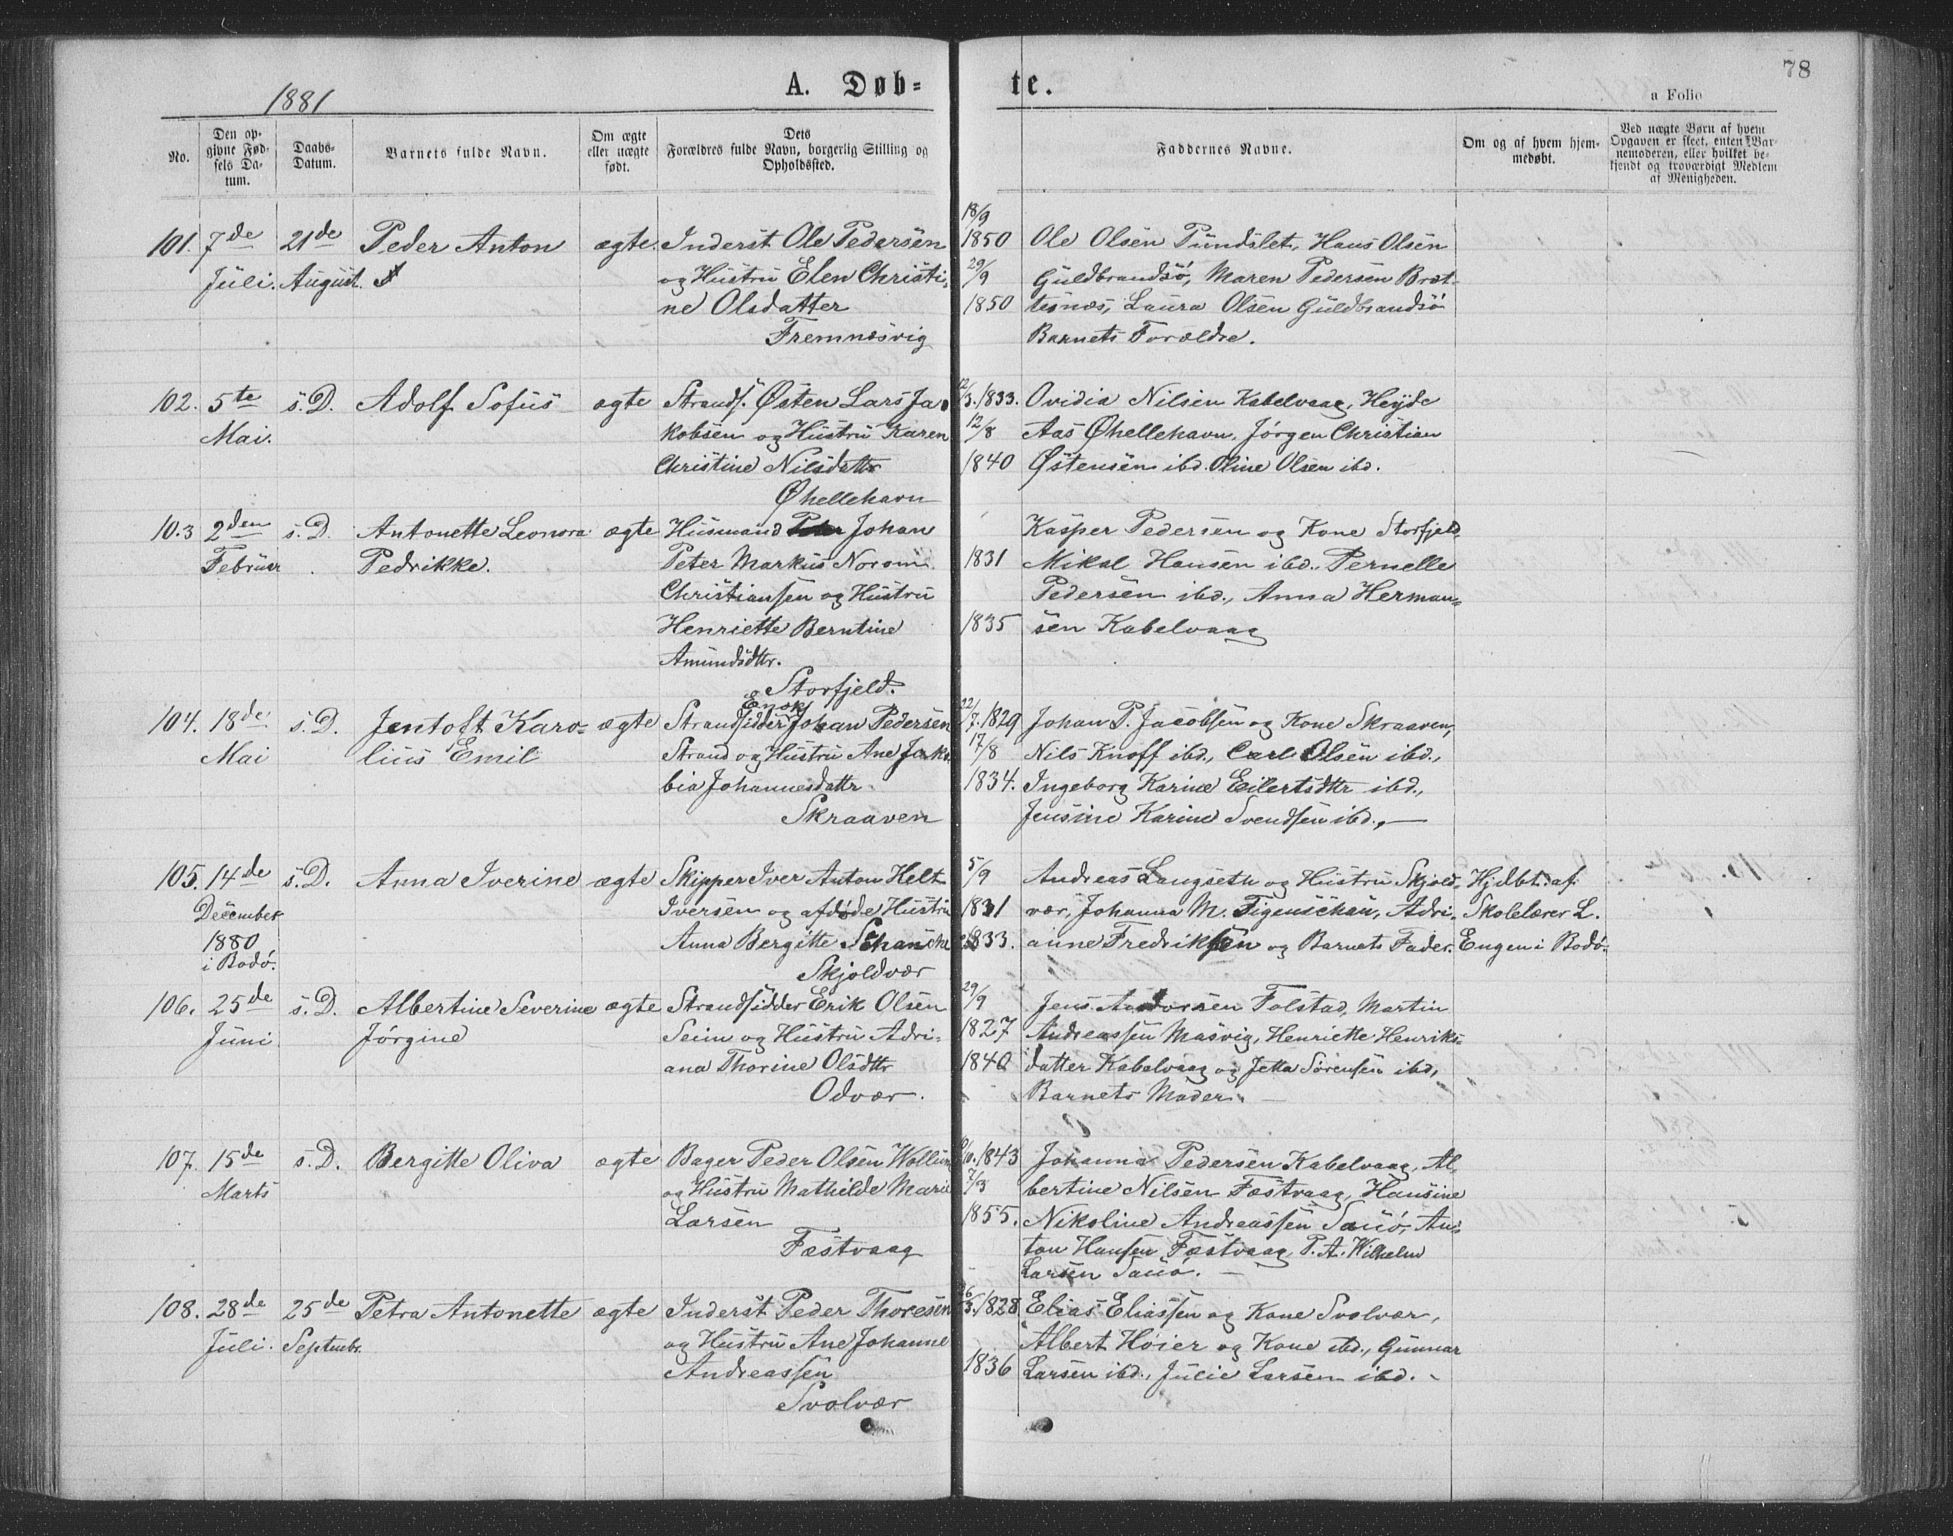 78
1881
A. Døb-
te.
a Folio
No.
Den op-
givne Fød-
sels Da-
tum.
Daabs-
Datum.
Barnets fulde Navn.
Om ægte
eller uægte
født.
Dets
Forældres fulde Navn, borgerlig Stilling og
Opholdssted.
Faddernes Navne.
Om og af hvem hjem-
medøbt.
Ved uægte Børn af hvem
Opgaven er skeet, enten Bar-
nemoderen, eller hvilket be-
kjendt og troværdigt Medlem
af Menigheden.
18/9
101. 7de 21de Peder Anton ægte. Inderst Ole Pedersen 1850 Ole Olsen Pundslet, Hans Olsen
Juli. August. og Hustru Elen Christi- 29/9 Guldbrandsø, Maren Pedersen Bret-
ne Olsdatter 1850 tesnæs, Laura Olsen Guldbrandsø
Fremnæsvig Barnets Forældre.
102. 5te s.D. Adolf Sofus ægte Strands. Østen Lars Ja- 12/3.1833. Ovidia Nilsen Kabelvaag, Heyde
Mai. kobsen og Hustru Karen 12/8 Aas Øhellehavn, Jørgen Christian
Christine Nilsdattr 1840 Østensen ibd. Oline Olsen ibd.
Øhellehavn
103 2den s.D. Antonette Leonora ægte Husmand Johan Kasper Pedersen og Kone Storfjeld,
Februar Pedrikke. Peter Markus Norum 1831 Mikal Hansen ibd., Pernelle
Christianssen og Hustru Pedersen ibd., Anna Herman-
Henriette Berntine 1835 sen Kabelvaag
Amundsdtr.
Storfjeld.
Enok
104. 18de s.D. Jentoft Karo- ægte Strandsidder Johan Pedersen 22/7.1829 Johan P. Jacobssen og Kone Skraaven,
Mai lius Emil Strand og Hustru Ane Jako 17/8 Nils Knoff ibd., Carl Olsen ibd.,
bia Johannesdattr. 1834. Ingeborg Karine Eilertsdtr ibd.,
Skraaven Jensine Karine Svendsen ibd.,
105. 14de s.D. Anna Iverine ægte Skipper Iver Anton Helt 5/9 Andreas Langseth og Hustru Skjold- Hjdbt. af
December Iversen og afdøde Hustru 1831 vær, Johanna M. Figenschau, Adri- Skolelærer L.
1880 Anna Bergitte Schanche 1833. anne Fredriksen og Barnets Fader. Engen i Bodø.
i Bodø. Skjoldvær
106. 25de s.D. Albertine Severine ægte Strandsidder Erik Olsen 29/9 Jens Andersen Folstad, Martin
Juni Jørgine Seim og Hustru Adri- 1827 Andreassen Masvig, Henriette Henriks-
ana Thorine Olsdtr 1840 datter Kabelvaag og Jetta Sørensen ibd,
Odvær. Barnets Moder.
107. 15de s.D. Bergitte Oliva ægte Bager Peder Olsen Wollum 1843 Johanna Pedersen Kabelvaag, Al-
Marts og Hustru Mathilde Marie 7/3 bertine Nilsen Fæstvaag, Hansine
Larsen 1855. Nikoline Andreassen Sauø, An-
Fæstvaag ton Hansen Fæstvaag, P. A. Wilhelm
Larsen Sauø.
108. 28de 25de Petra Antonette ægte Inderst Peder Thoresen 26/5.1828 Elias Eliassen og Kone Svolvær,
Juli. Septembr. og Hustru Ane Johanne Albert Høier og Kone ibd., Gunnar
Andreassen 1836 Larsen ibd., Julie Larsen ibd.
Svolvær